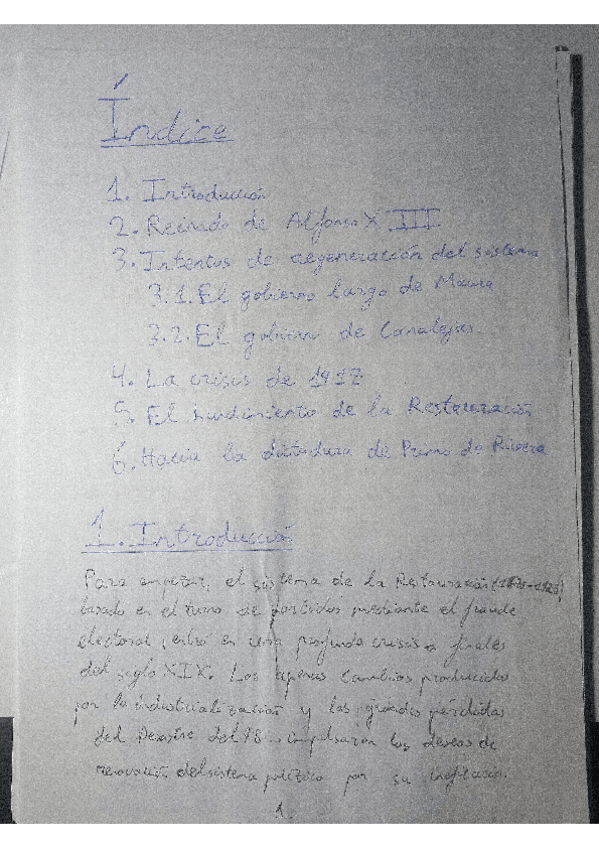 Índice
1. Introducción
2. Reinado de Alfonso XIII
3. Intentos de regeneración del sistema
3.1. El gobierno largo de Maura
3.2. El gobierno de Canalejas
4. La crisis de 1917
5. El hundimiento de la Restauración
6. Hacia la dictadura de Primo de Rivera
1. Introducción
Para empezar, el sistema de la Restauración
basado en el turno de partidos mediante el fraude
electoral, entró en una profunda crisis a finales
del siglo XIX. Los apenas cambios producidos
por la industrialización y las grandes pérdidas
del Desastre del 98 impulsaron los deseos de
renovación del sistema político por su ineficacia.
1.